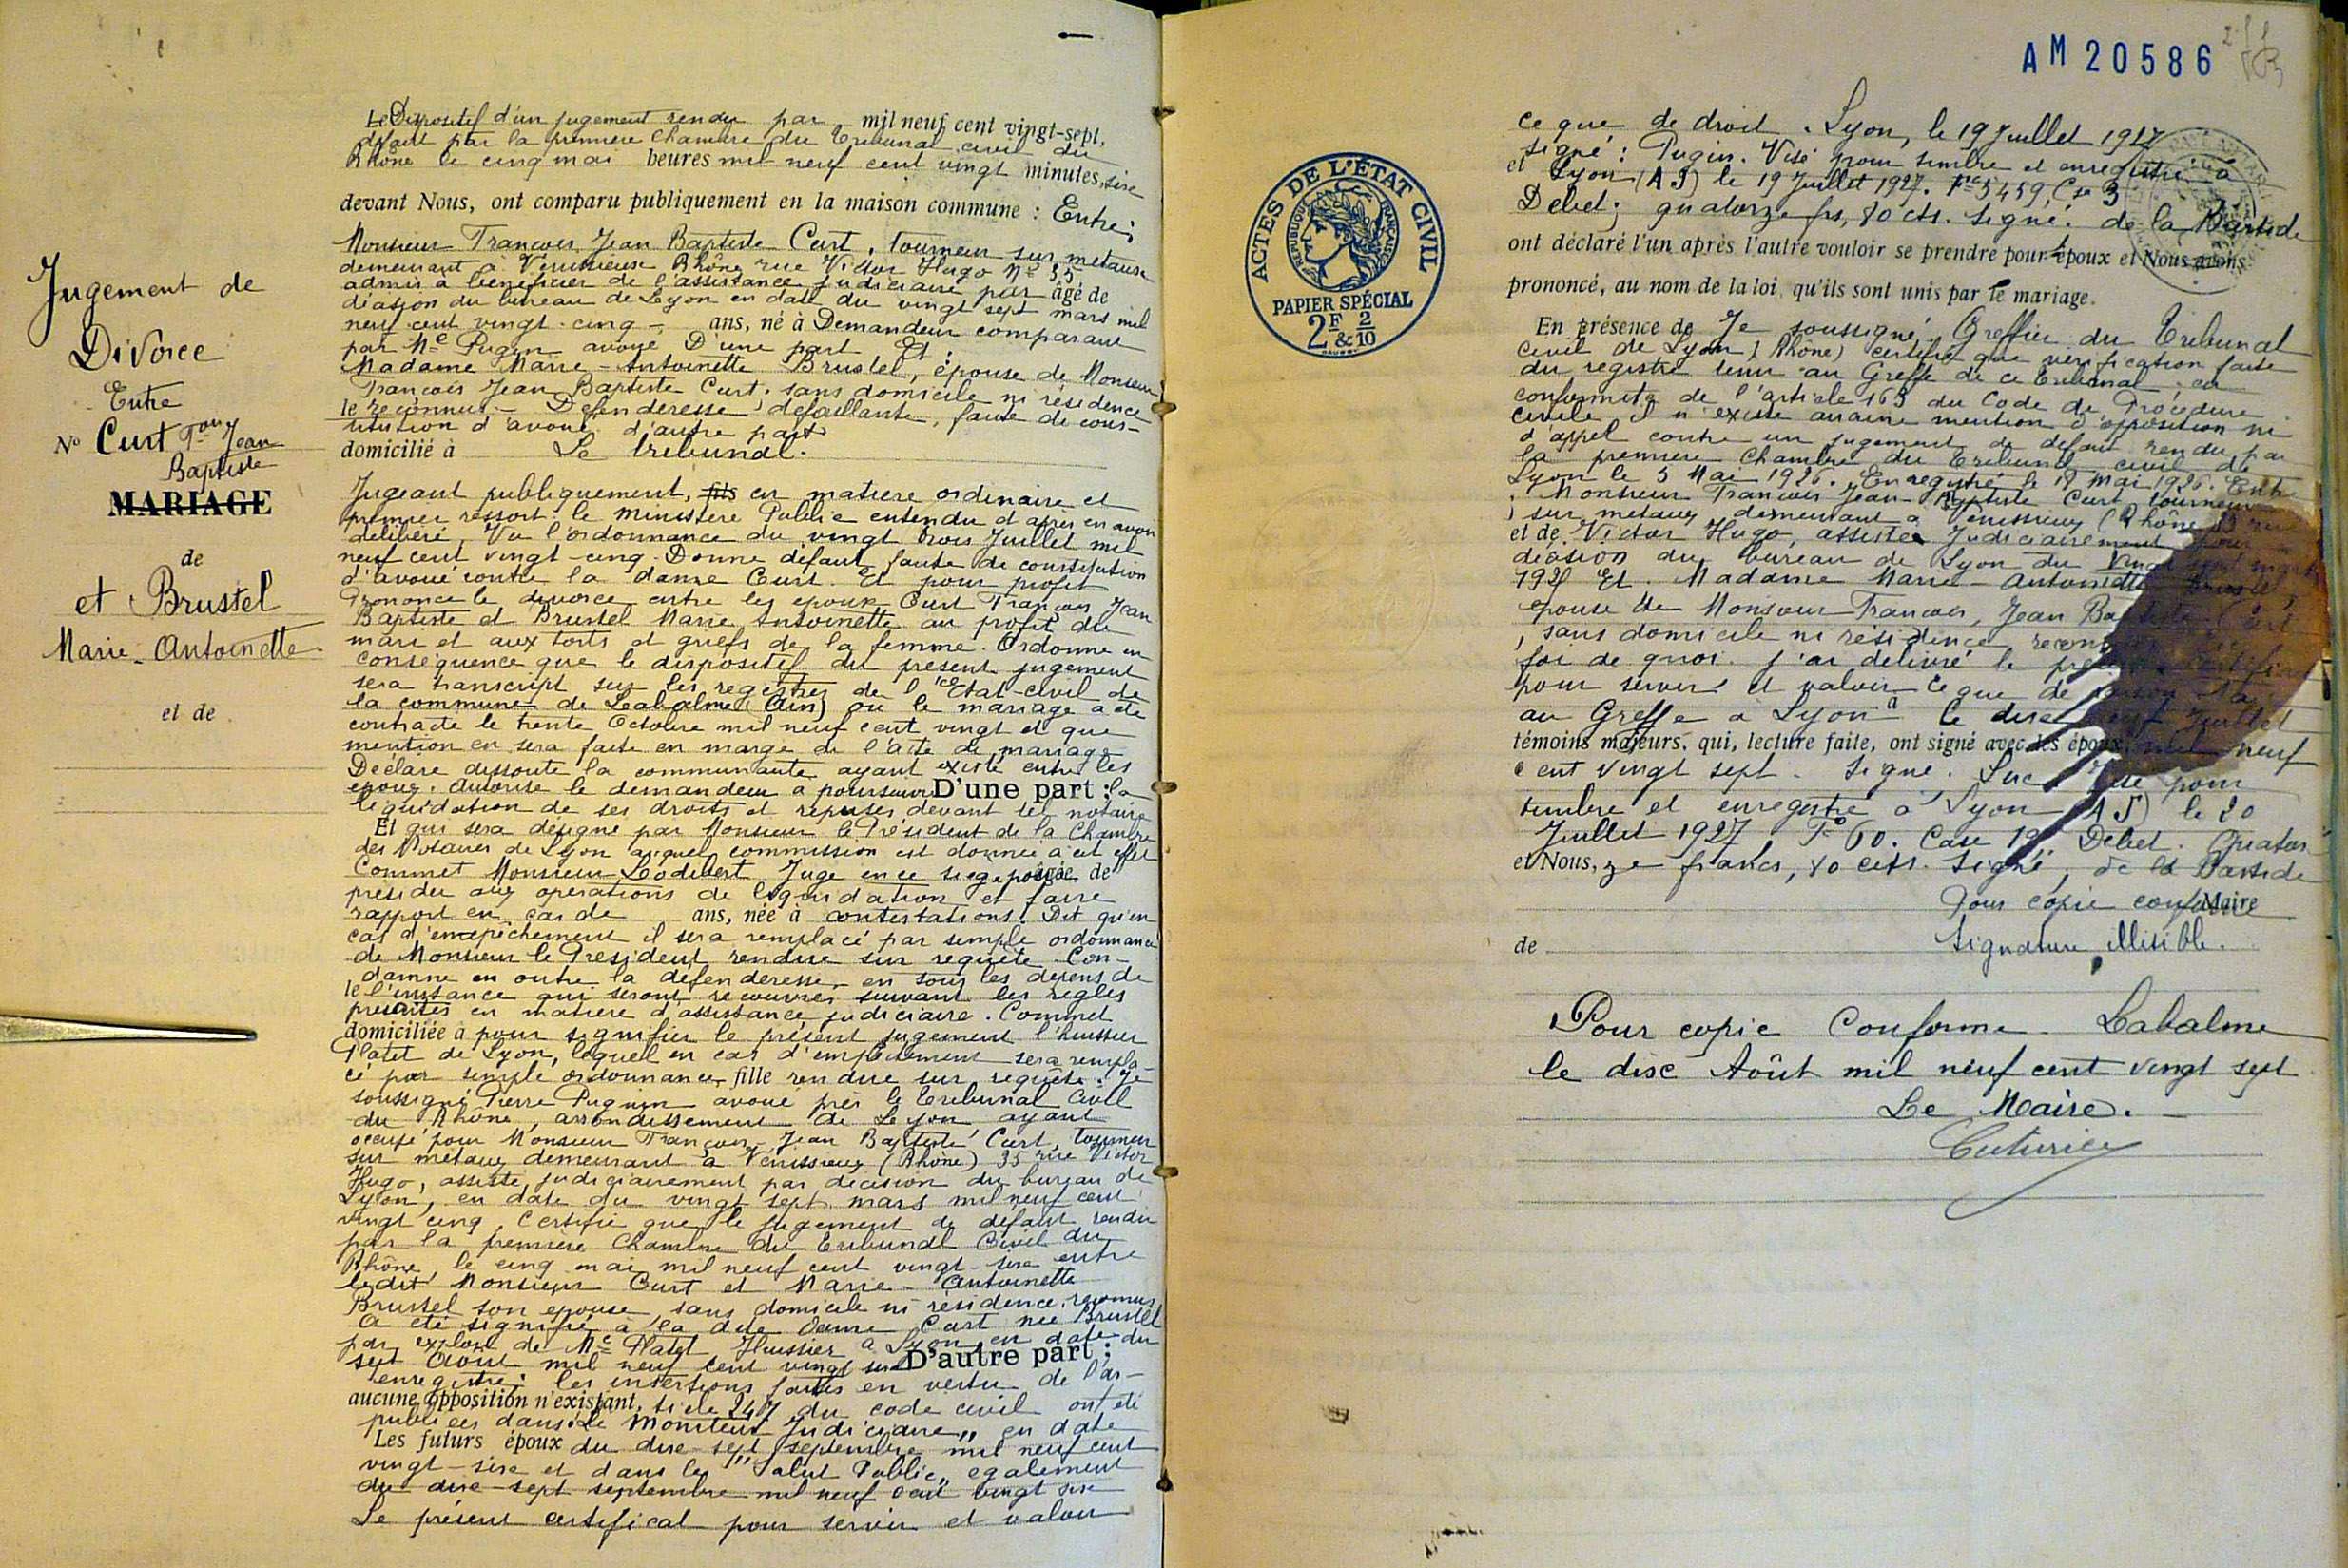 Jugement de
Divorce
Entre
N° Curt Fois Jean
Baptiste
MARIAGE
de
et Brustel
Marie-Antoinette
et de
Le Dispositif d'un jugement rendu par mil neuf cent vingt-sept,
défaut par la première Chambre du Tribunal civil du
Rhône le cinq mai heures mil neuf cent vingt minutes, sixe
devant Nous, ont comparu publiquement en la maison commune : Entre;
Monsieur François Jean Baptiste Curt, tourneur sur métaux
demeurant à Vénissieux Rhône rue Victor Hugo N° 35
admis à bénéficier de l'assistance judiciaire par âgé de
décision du bureau de Lyon en date du vingt sept mars mil
neuf cent vingt-cinq - ans, né à Demandeur comparant
par Me Pugin avoué D'une part Et :
Madame Marie-Antoinette Brustel, épouse de Monsieur
François Jean Baptiste Curt, sans domicile ni résidence
le reconnus - Défenderesse défaillante, faute de cons-
titution d'avoué d'autre part
domicilié à Le tribunal.
Jugeant publiquement, fils en matière ordinaire et
premier ressort le Ministère Public entendu et après en avoir
délibéré, Vu l'ordonnance du vingt trois Juillet mil
neuf cent vingt-cinq. Donne défaut faute de constitution
d'avoué contre la dame Curt. Et pour profit
Prononce le divorce entre les époux Curt François Jean
Baptiste et Brustel Marie Antoinette au profit du
mari et aux torts et griefs de la femme. Ordonne en
conséquence que le dispositif du présent jugement
sera transcrit sur les registres de l'Etat-civil de
la commune de Labalme (Ain) où le mariage a été
contracté le trente Octobre mil neuf cent vingt et que
mention en sera faite en marge de l'acte de mariage
Déclare dissoute la communauté ayant existé entre les
époux. Autorise le demandeur à poursuivre D'une part ; la
liquidation de ses droits et reprises devant tel notaire
Et qui sera désigné par Monsieur le Président de la Chambre
des Notaires de Lyon auquel commission est donnée à cet effet
Commet Monsieur Lodibert Juge en ce siège pour âgée de
présider aux opérations de liquidation et faire
rapport en cas de ans, née à contestations. Dit qu'en
cas d'empêchement il sera remplacé par simple ordonnance
de Monsieur le Président rendue sur requête. Con-
damne en outre la défenderesse en tous les dépens de
le l'instance qui seront recouvrés suivant les règles
prescrites en matière d'assistance judiciaire. Commet
domiciliée à pour signifier le présent jugement l'huissier
Platet de Lyon, lequel en cas d'empêchement sera rempla-
cé par simple ordonnance fille rendue sur requête. Je
soussigné Pierre Pugnin avoué près le Tribunal Civil
du Rhône, arrondissement de Lyon, ayant
occupé pour Monsieur François Jean Baptiste Curt, tourneur
sur métaux demeurant à Vénissieux (Rhône) 35 rue Victor
Hugo, assisté judiciairement par décision du bureau de
Lyon, en date du vingt sept mars mil neuf cent
vingt cinq, Certifie que le jugement de défaut rendu
par la première Chambre du Tribunal Civil du
Rhône, le cinq mai mil neuf cent vingt-sixe entre
ledit Monsieur Curt et Marie-Antoinette
Brustel son épouse, sans domicile ni résidence reconnus
a été signifié à la dite Dame Curt née Brustel
par exploit de Me Platet Huissier à Lyon en date du
sept Août mil neuf cent vingt sixe D'autre part ;
enregistré; les insertions faites en vertu de l'ar-
aucune opposition n'existant, ticle 247 du code civil ont été
publiées dans "Le Moniteur Judiciaire" en date
Les futurs époux du dixe-sept septembre mil neuf cent
vingt-sixe et dans le "Salut Public" également
du dixe-sept septembre mil neuf cent vingt sixe
Le présent certificat pour servir et valoir
AM 20586
ce que de droit. Lyon, le 19 Juillet 1927
signé : Pugin. Visé pour timbre et enregistré à
et Lyon (AJ) le 19 Juillet 1927. N° 5459, Cse 3
Debet; quatorze frs, 80 cts. signé: de la Bastide
ont déclaré l'un après l'autre vouloir se prendre pour époux et Nous avons
prononcé, au nom de la loi, qu'ils sont unis par le mariage.
En présence de Je soussigné, Greffier du Tribunal
civil de Lyon (Rhône) certifie que vérification faite
du registre tenu au Greffe de ce Tribunal en
conformité de l'article 163 du Code de Procédure
civile, il n'existe aucune mention d'opposition ni
d'appel contre un jugement de défaut rendu par
la première Chambre du Tribunal civil de
Lyon le 5 Mai 1926. Enregistré le 18 Mai 1926. Entre
Monsieur François Jean-Baptiste Curt tourneur
sur métaux demeurant à Vénissieux (Rhône) 35 rue
et de Victor Hugo, assisté Judiciairement
décision du bureau de Lyon du Vingt sept mars
192 Et. Madame Marie-Antoinette Brustel,
épouse de Monsieur François, Jean Baptiste Curt
, sans domicile ni résidence reconnus
foi de quoi j'ai délivré le présent certificat
pour servir et valoir ce que de
au Greffe à Lyon à le dixe neuf Juillet
témoins majeurs, qui, lecture faite, ont signé avec les époux, mil neuf
cent vingt sept. Signé. Luc Visé pour
timbre et enregistré à Lyon (AJ) le 20
Juillet 1927 F° 60. Case 19. Debet. Quator
et Nous, ze francs, 80 cents. Signé, de la Bastide
Pour copie conforme Maire
de Signature illisible.
Pour copie Conforme. Labalme
le dixe Août mil neuf cent vingt sept
Le Maire.
ACTES DE L'ÉTAT CIVIL
RÉPUBLIQUE FRANÇAISE
PAPIER SPÉCIAL
2F & 2/10